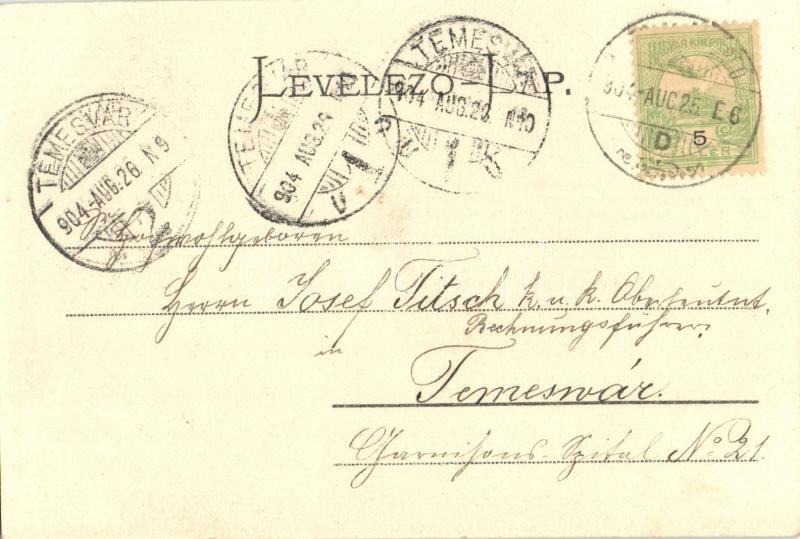 LEVELEZŐ-LAP.
TEMESVÁR
904 AUG. 26. N 9
TEMESVÁR
904 AUG. 26
TEMESVÁR
904 AUG. 26. N10
904 AUG 25 E 6
D
5
Hochwohlgeboren
Herrn Josef Titsch k. u. k. Oberleutnt.
Rechnungsführer
in
Temeswár.
Garnisons-Spital No 21.